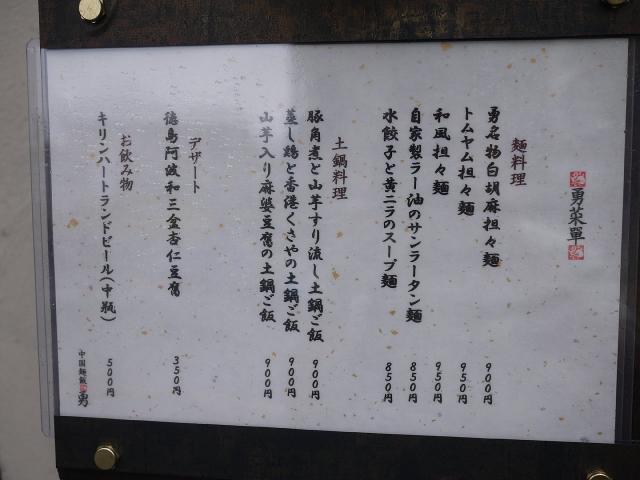 勇菜單
麺料理
勇名物白胡麻担々麺 900円
トムヤム担々麺 950円
和風担々麺 950円
自家製ラー油のサンラータン麺 850円
水餃子と黄ニラのスープ麺 850円
土鍋料理
豚角煮と山芋すり流し土鍋ご飯 900円
蒸し鶏と香港くさやの土鍋ご飯 900円
山芋入り麻婆豆腐の土鍋ご飯 900円
デザート
徳島阿波和三盆杏仁豆腐 350円
お飲み物
キリンハートランドビール(中瓶) 500円
中国麺飯 勇